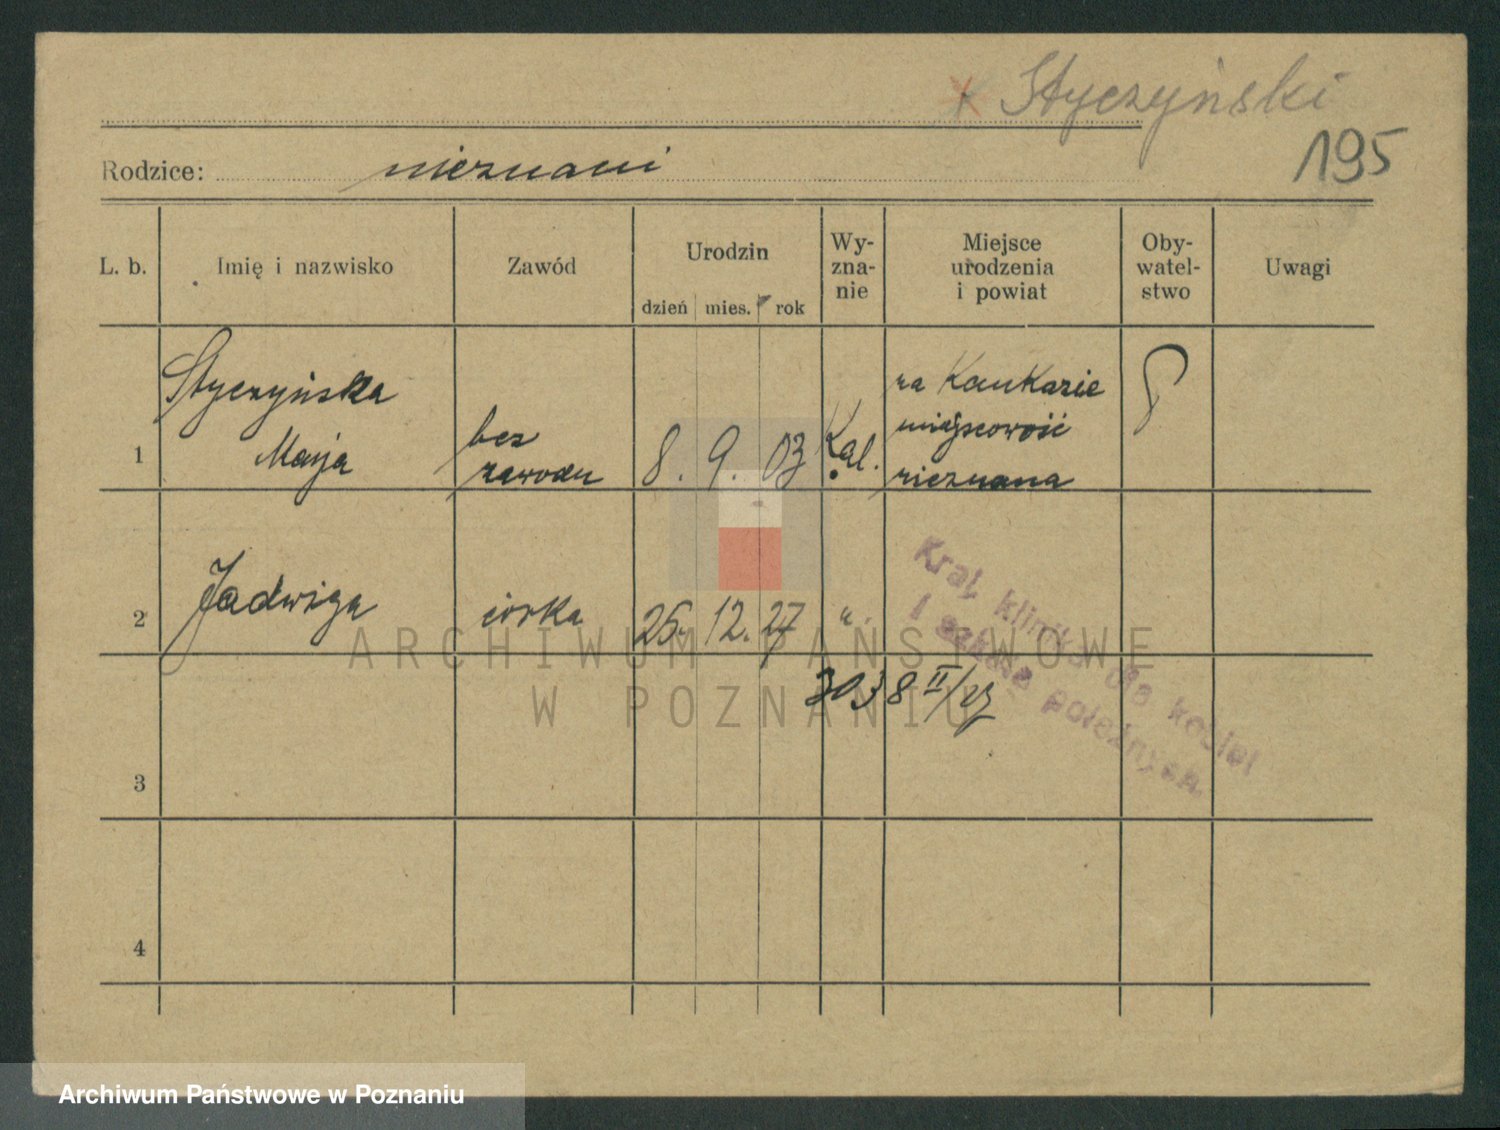 Styczyński
195
Rodzice: nieznani
L. b. Imię i nazwisko Zawód Urodzin dzień mies. rok Wy-zna-nie Miejsce urodzenia i powiat Oby-watel-stwo Uwagi
1 Styczyńska Marja bez zawodu 8. 9. 03 Kat. na Kaukazie miejscowość nieznana ?
2 Jadwiga córka 25. 12. 27 "
Kraj. klinika dla kobiet
i szkoła położnych.
3038 II/27
3
4
ARCHIWUM PAŃSTWOWE
W POZNANIU
Archiwum Państwowe w Poznaniu